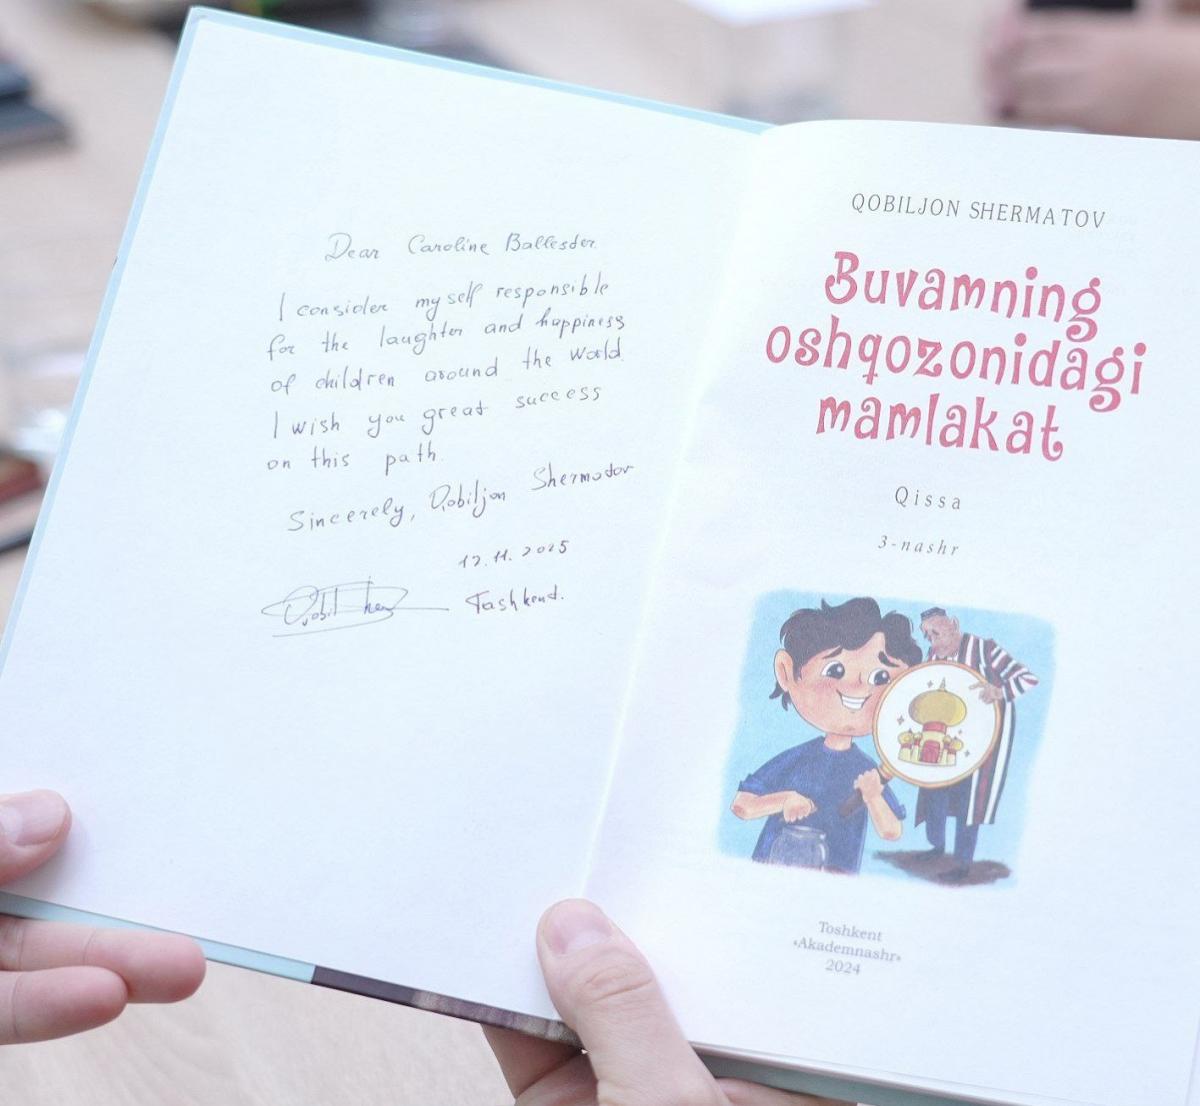 Dear Caroline Ballester.
I consider myself responsible
for the laughter and happiness
of children around the world.
I wish you great success
on this path.
Sincerely, Qobiljon Shermatov
12.11.2025
Tashkent.
QOBILJON SHERMATOV
Buvamning
oshqozonidagi
mamlakat
Qissa
3-nashr
Toshkent
«Akademnashr»
2024